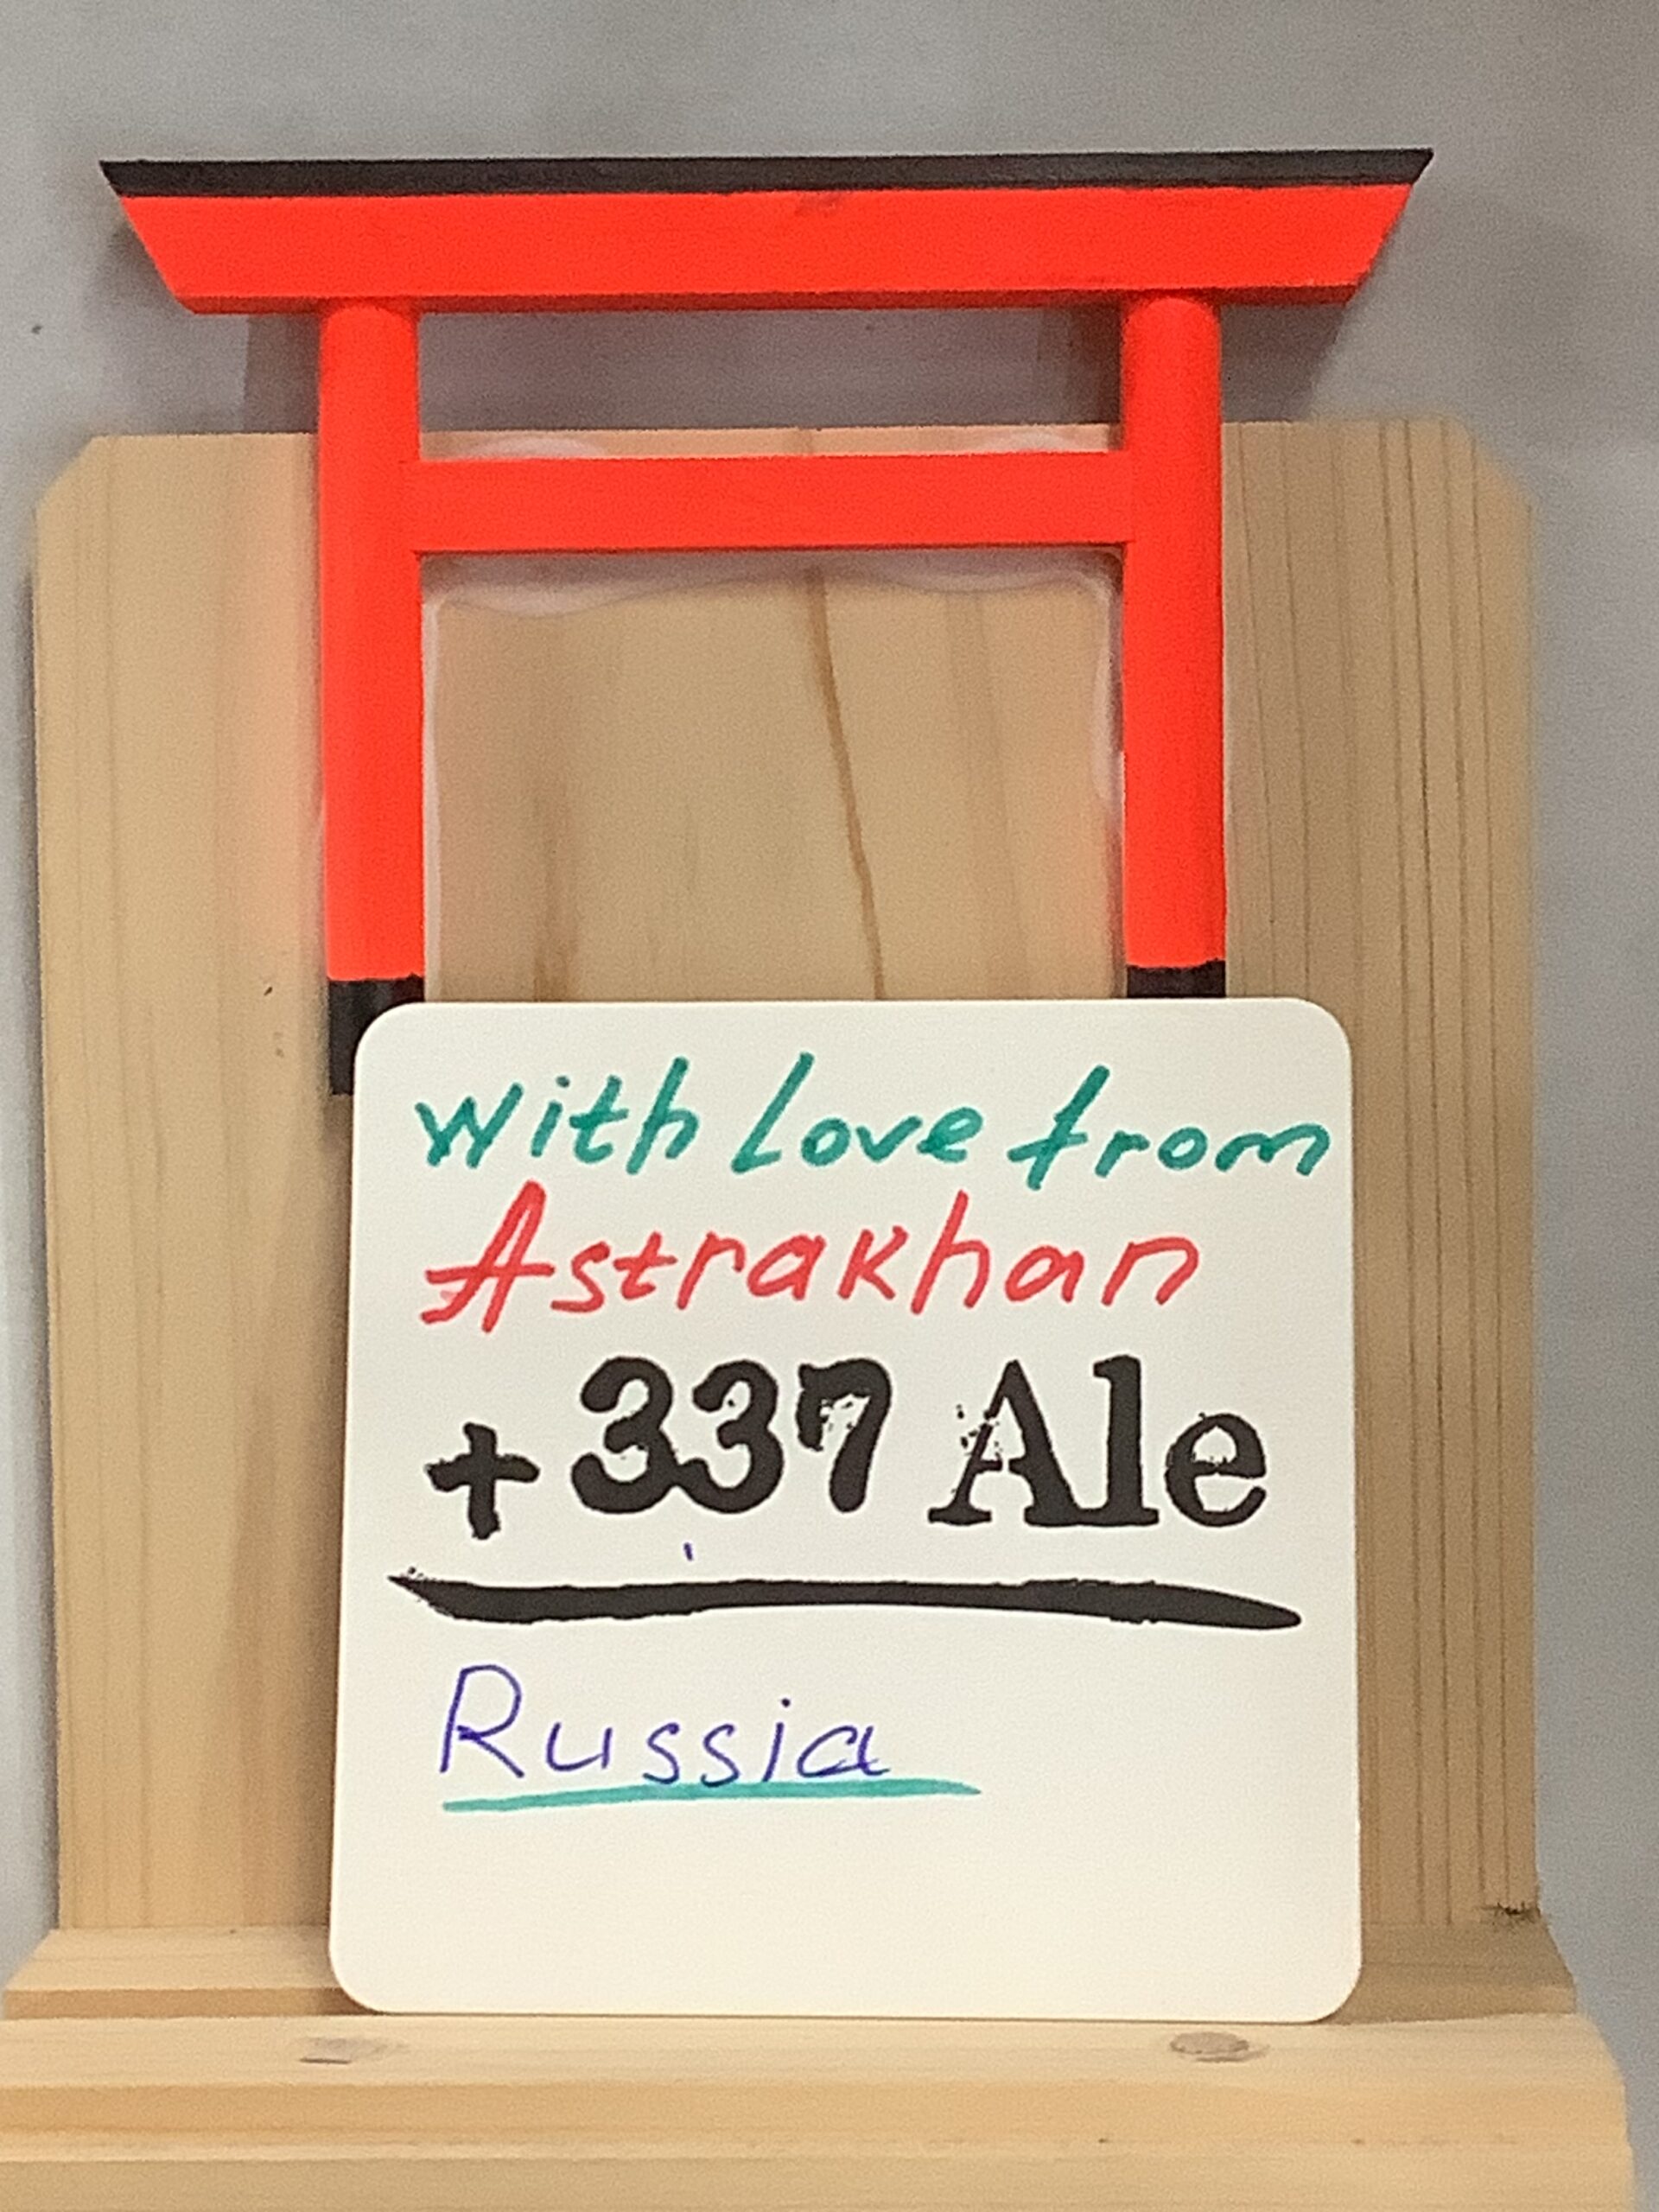 With Love from
Astrakhan
+337 Ale
Russia